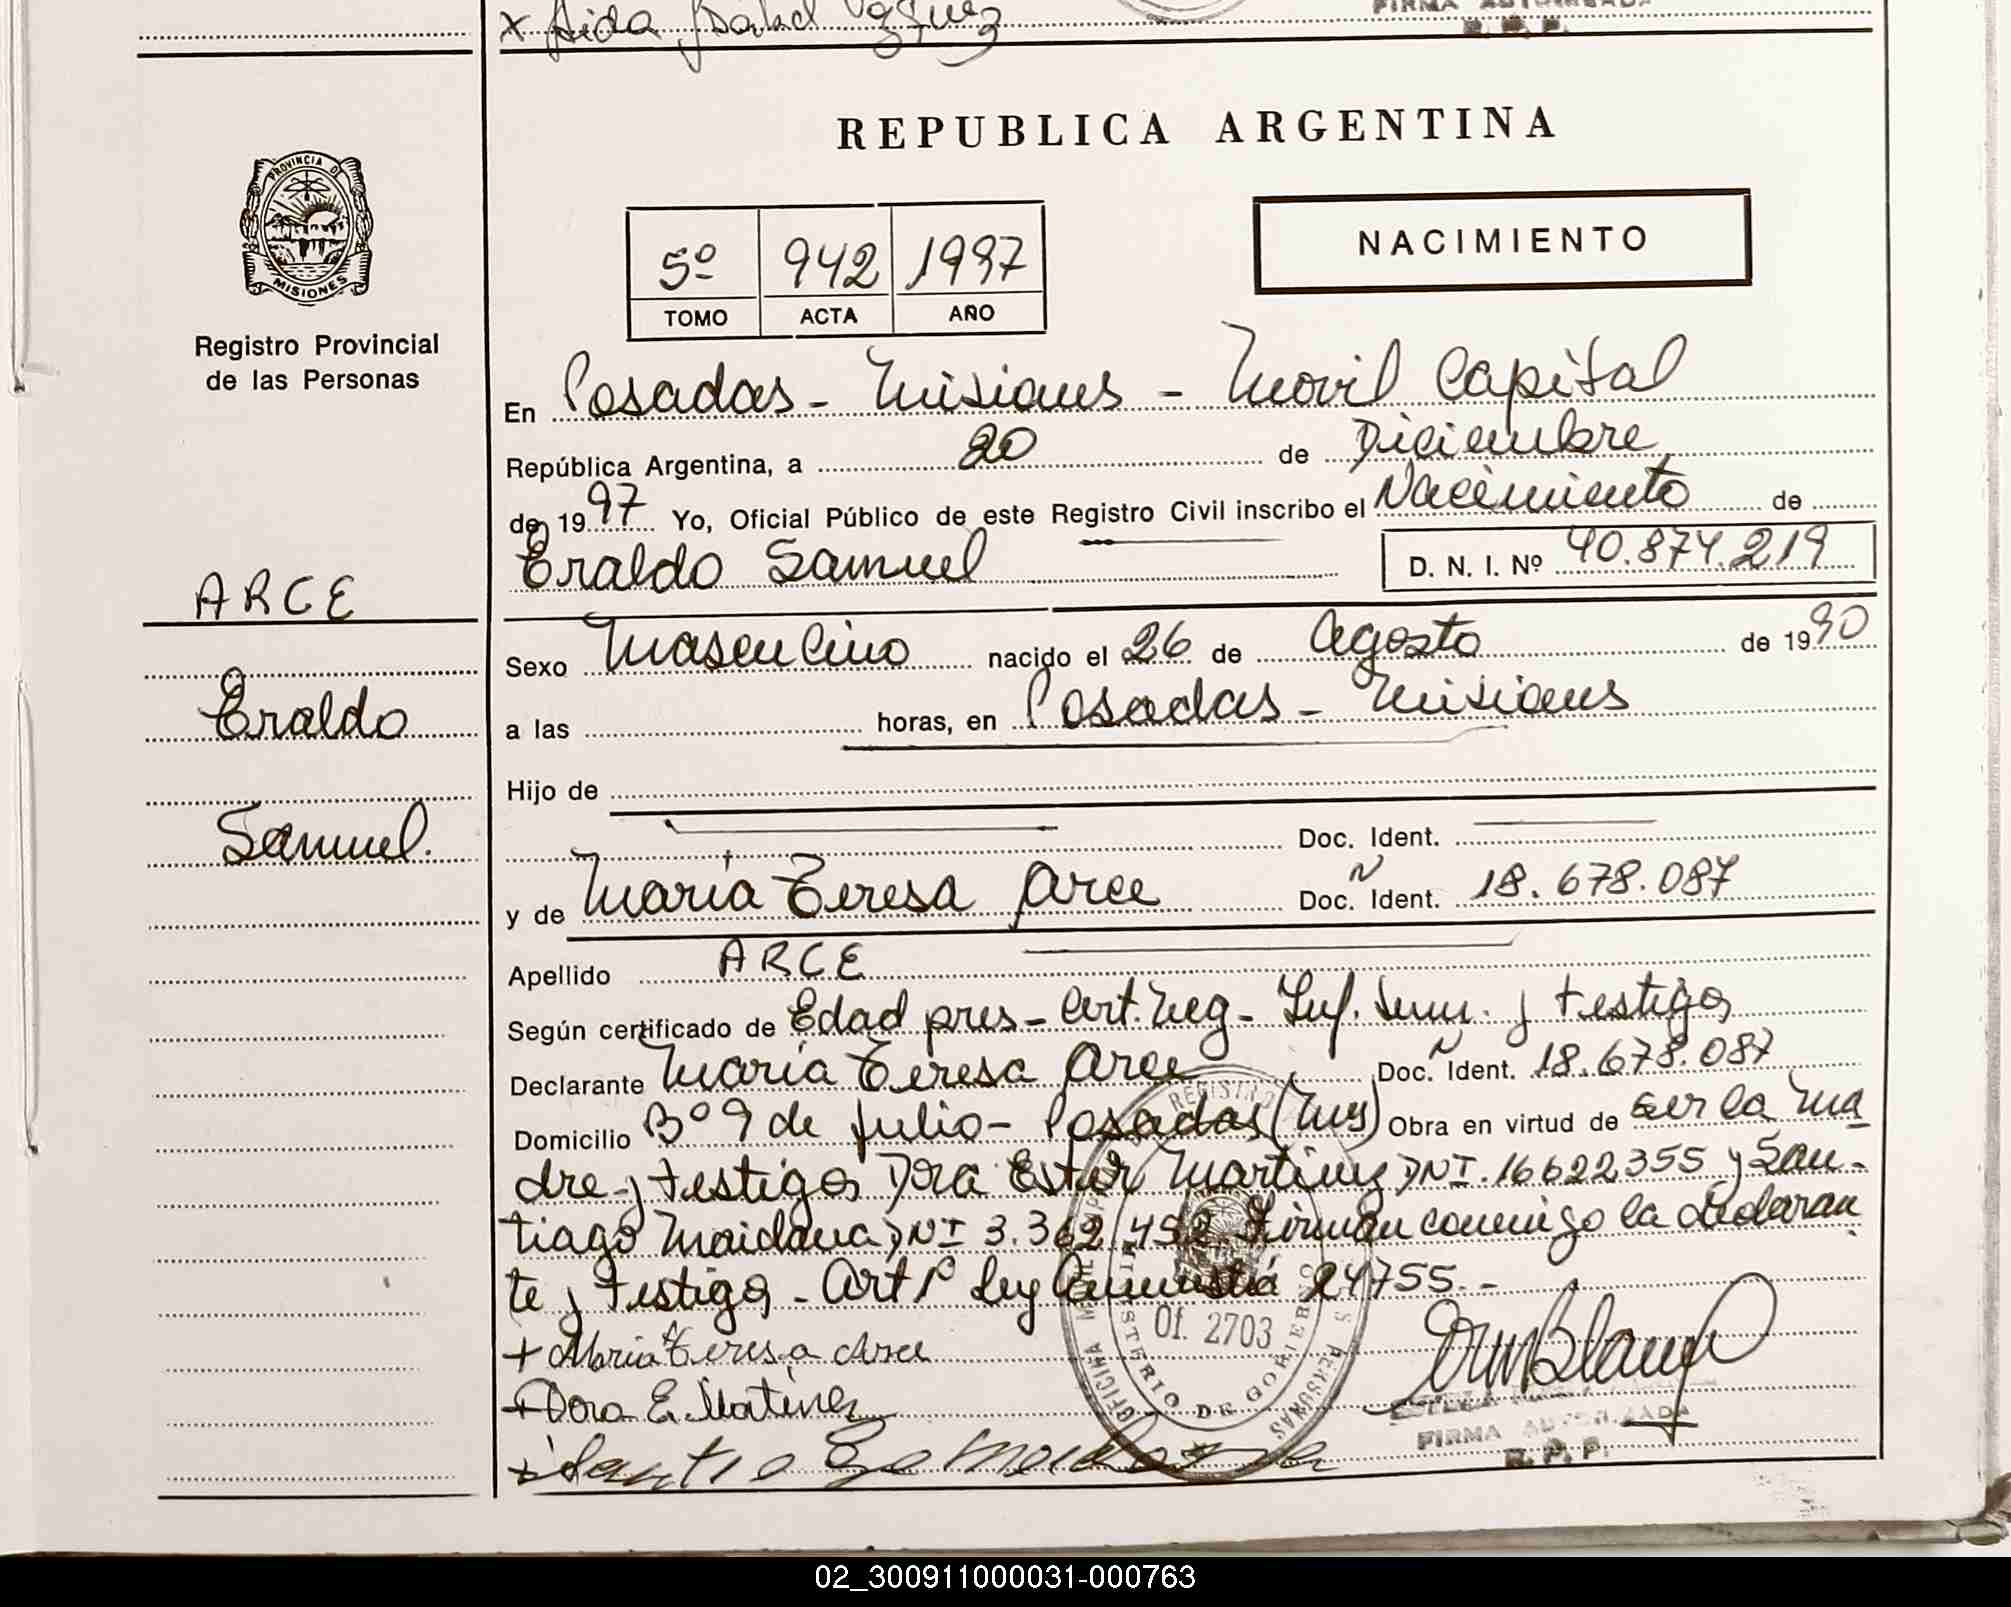 x Aida Isabel
FIRMA AUTORIZADA
R. P. P.
REPUBLICA ARGENTINA
PROVINCIA DE
MISIONES
Registro Provincial
de las Personas
5º 942 1997
TOMO ACTA AÑO
NACIMIENTO
En Posadas - Misiones - Movil Capital
República Argentina, a 20 de Diciembre
de 1997 Yo, Oficial Público de este Registro Civil inscribo el Nacimiento de
Eraldo Samuel D. N. I. Nº 40.874.219
ARCE
Eraldo
Samuel.
Sexo Masculino nacido el 26 de Agosto de 1990
a las horas, en Posadas - Misiones
Hijo de
Doc. Ident.
y de María Teresa Arce Doc. Ident. 18.678.087
Apellido ARCE
Según certificado de Edad pres - Cert. Neg - Inf. Sum. y testigos
Declarante María Teresa Arce Doc. Ident. 18.678.087
Domicilio Bº 9 de Julio - Posadas (Mns) Obra en virtud de ser la ma
dre y testigos Dora Ester Martinez DNI. 16622355 y San-
tiago Maidana DNI 3.362.452 Firman conmigo la declaran
te y testigos - Art 1º Ley Amnistía 24755. -
+ María Teresa Arce
+ Dora E. Matinez
Of. 2703
MINISTERIO DE GOBIERNO
FIRMA AUTORIZADA
R. P. P.
02_300911000031-000763